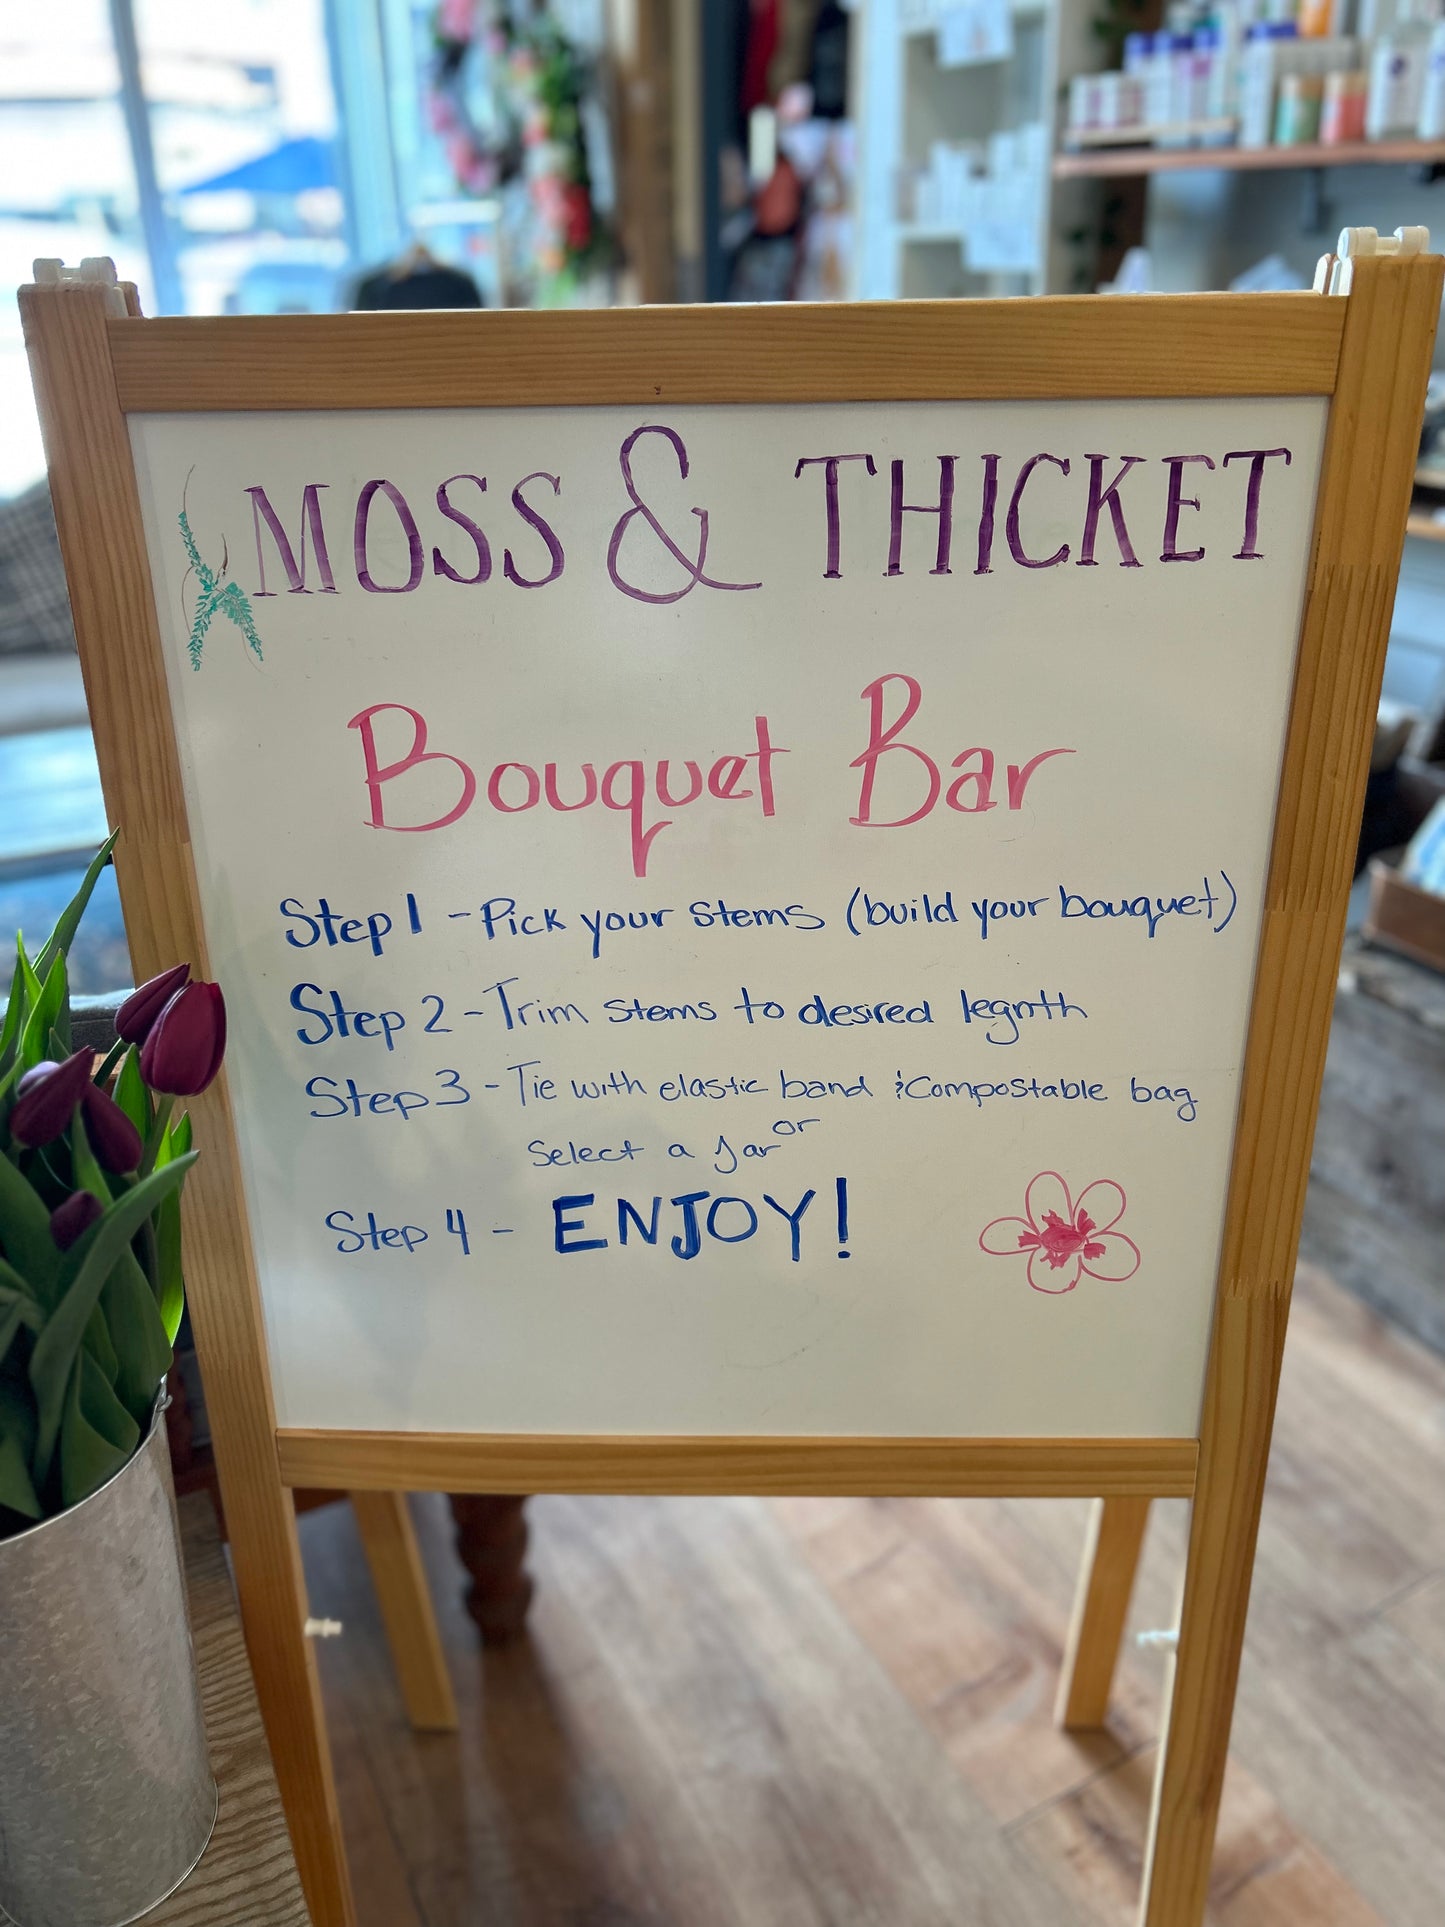 MOSS & THICKET
Bouquet Bar
Step 1 - Pick your stems (build your bouquet)
Step 2 - Trim stems to desired legnth
Step 3 - Tie with elastic band & Compostable bag
or
Select a Jar
Step 4 - ENJOY!